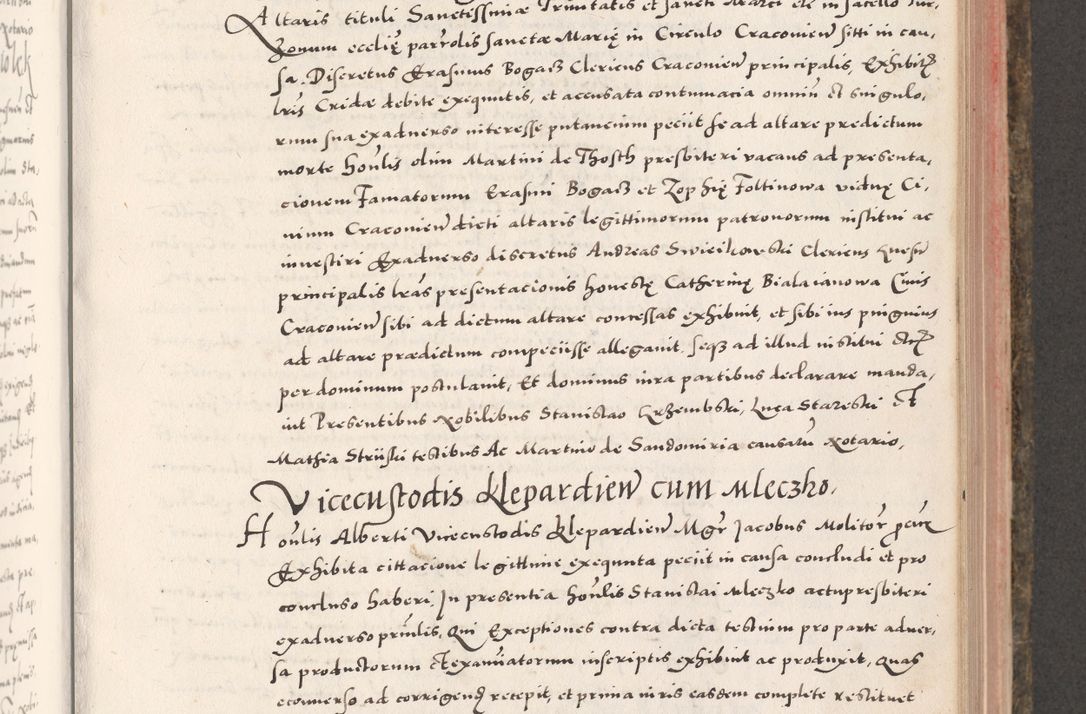 Altaris tituli Sanctissimæ Trinitatis et sancti Marci etc in sacello Tur,
Zonum ecclię parrolis sanctæ Marię in Circulo Cracovien sitti in cau,
sa. Discretus Erasmus Bogacz Clericus Cracovien principalis, Exhibitis
lris Cridæ debite exequutis, et accusata contumacia omniū et singulo,
rum sua exadverso interesse putancium peciit se ad altare predictum
morte honlis olim Martini de Thosch presbiteri vacans ad presenta,
cionem Famatorum Erasmi Bogacz et Zophię Foltinowa viduę Ci,
vium Cracovien dicti altaris legittimorum patronorum institui ac
investiri Exadverso discretus Andreas Swieikowski Clericus
principalis lras presentacionis honestę Catherinę Bialacianowa Civis
Cracovien sibi ad dictum altare concessas exhibuit, et sibi ius pinguius
ad altare prædictum compeciisse allegavit. Seq ad illud institui etc
per dominum postulavit, Et dominus iura partibus declarare manda,
vit Presentibus Nobilibus Stanislao Krzembski, Luca Stareski et
Mathia Striiski testibus Ac Martino de Sandomiria causarū Notario,
Vicecustodis Klepardien cum Mleczko.
Honlis Alberti Vicecustodis Klepardien Mgr Jacobus Molitor
Exhibita cittacione legittime exequuta peciit in causa concludi et pro
concluso haberi. In presentia honlis Stanislai Mleczko actu presbiteri
exadverso prinlis, Qui Exceptiones contra dicta testium pro parte adver,
sa productorum et examinatorum in scriptis exhibuit ac produxit, Quas
econverso ad corrigend recepit, et prima iuris easdem complete restituet